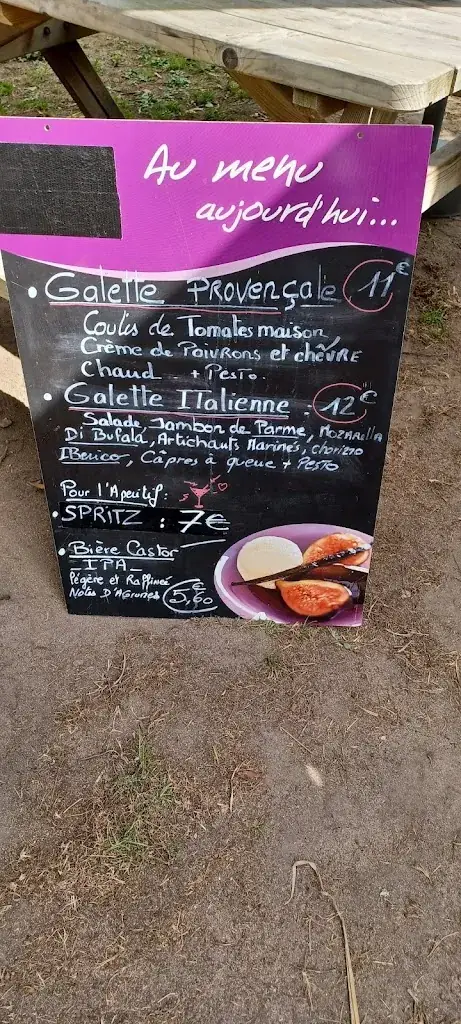 Au menu
aujourd'hui...
• Galette PROVENÇALE 11€
Coulis de Tomates maison
Crème de Poivrons et chèVRE
Chaud + PesTo.
• Galette ITalienne . 12€
Salade, Jambon de Parme, MOZARella
Di Bufala, Artichauts Marinés, chorizo
IBerico, Câpres à queue + PesTo
Pour l'Aperitif :
• SPRITZ : 7€
• Bière Castor
- IPA -
Légère et Raffinée
Notes D'AGrumes 5,60€